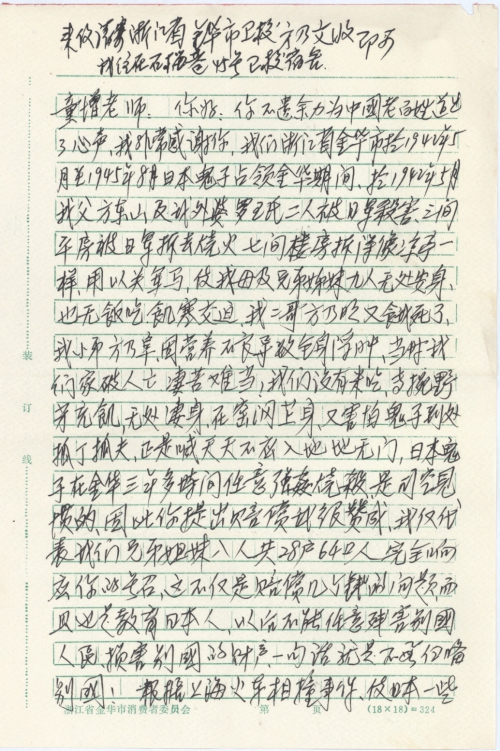 来信请寄浙江省金华市卫校方乃文收即可
我住在石榴巷45号卫校宿舍
童增老师: 你好: 你不遗余力为中國老百姓道出
了心声,我非常感谢你,我们浙江省金华市於1942年5
月至1945年8月日本鬼子占领金华期间,於1942年5月
我父方东山及我外婆罗王氏二人被日軍殺害,三间
平房被日军拆去烧火七间楼房拆得像凉亭一
样,用以关军马,使我母及兄弟姊妹九人无处安身,
也无飯吃飢寒交迫,我二哥方乃 又餓死了,
我小弟方乃 因营养不良导致全身浮肿,当时我
们家破人亡凄苦难当,我们没有米吃,靠挽野
牙充飢,无处凄身在窑洞 身又害怕鬼子到处
抓丁抓夫,正是喊天天不应入地地无门,日本鬼
子在金华三年多時间任意强姦烧殺,是司空見
惯的,因此你提出赔偿我很赞成,我仅代
表我们兄弟姐妹八人共28户64口人完全响
应你的号召,这不仅是赔偿几个钱的问题而
且也是教育日本人,以后不能任意残害别國
人民损害别國的财产一句话就是不要侵略
别國! 根据上海火车相撞事件,使日本一些
浙江省金华市消费者委员会 第 页 (18×18)=324
装
订
线